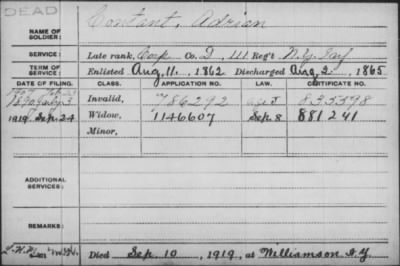 DEAD
NAME OF SOLDIER: Contant, Adrian
SERVICE: Late rank, Corp Co. D, 111 Reg't N.Y. Inf
TERM OF SERVICE: Enlisted Aug. 11, 1862 Discharged Aug 2, 1865
DATE OF FILING. CLASS. APPLICATION NO. LAW. CERTIFICATE NO.
1890 July 3 Invalid, 786292 835598
1919, Sep. 24 Widow, 1146607 Sep. 8 881241
Minor,
ADDITIONAL SERVICES:
REMARKS:
Died Sep. 10, 1919, at Williamson N.Y.